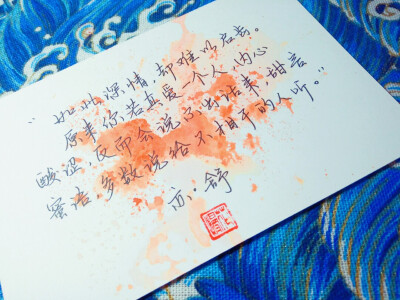 “如此深情，却难以启齿。
原来你若真爱一个人，内心
酸涩，反而会说不出话来，甜言
蜜语，多数说给不相干的人听。”
亦·舒